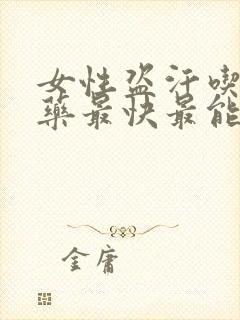 女性盗汗喫
藥最快最能
金庸